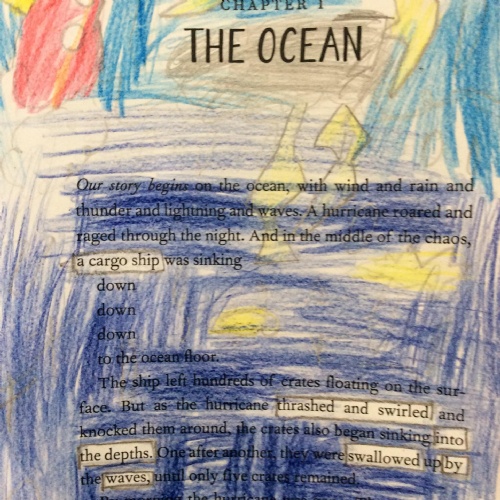 CHAPTER 1
THE OCEAN
Our story begins on the ocean, with wind and rain and
thunder and lightning and waves. A hurricane roared and
raged through the night. And in the middle of the chaos,
a cargo ship was sinking
down
down
down
to the ocean floor.
The ship left hundreds of crates floating on the sur-
face. But as the hurricane thrashed and swirled and
knocked them around, the crates also began sinking into
the depths. One after another, they were swallowed up by
the waves, until only five crates remained.
the hurricane